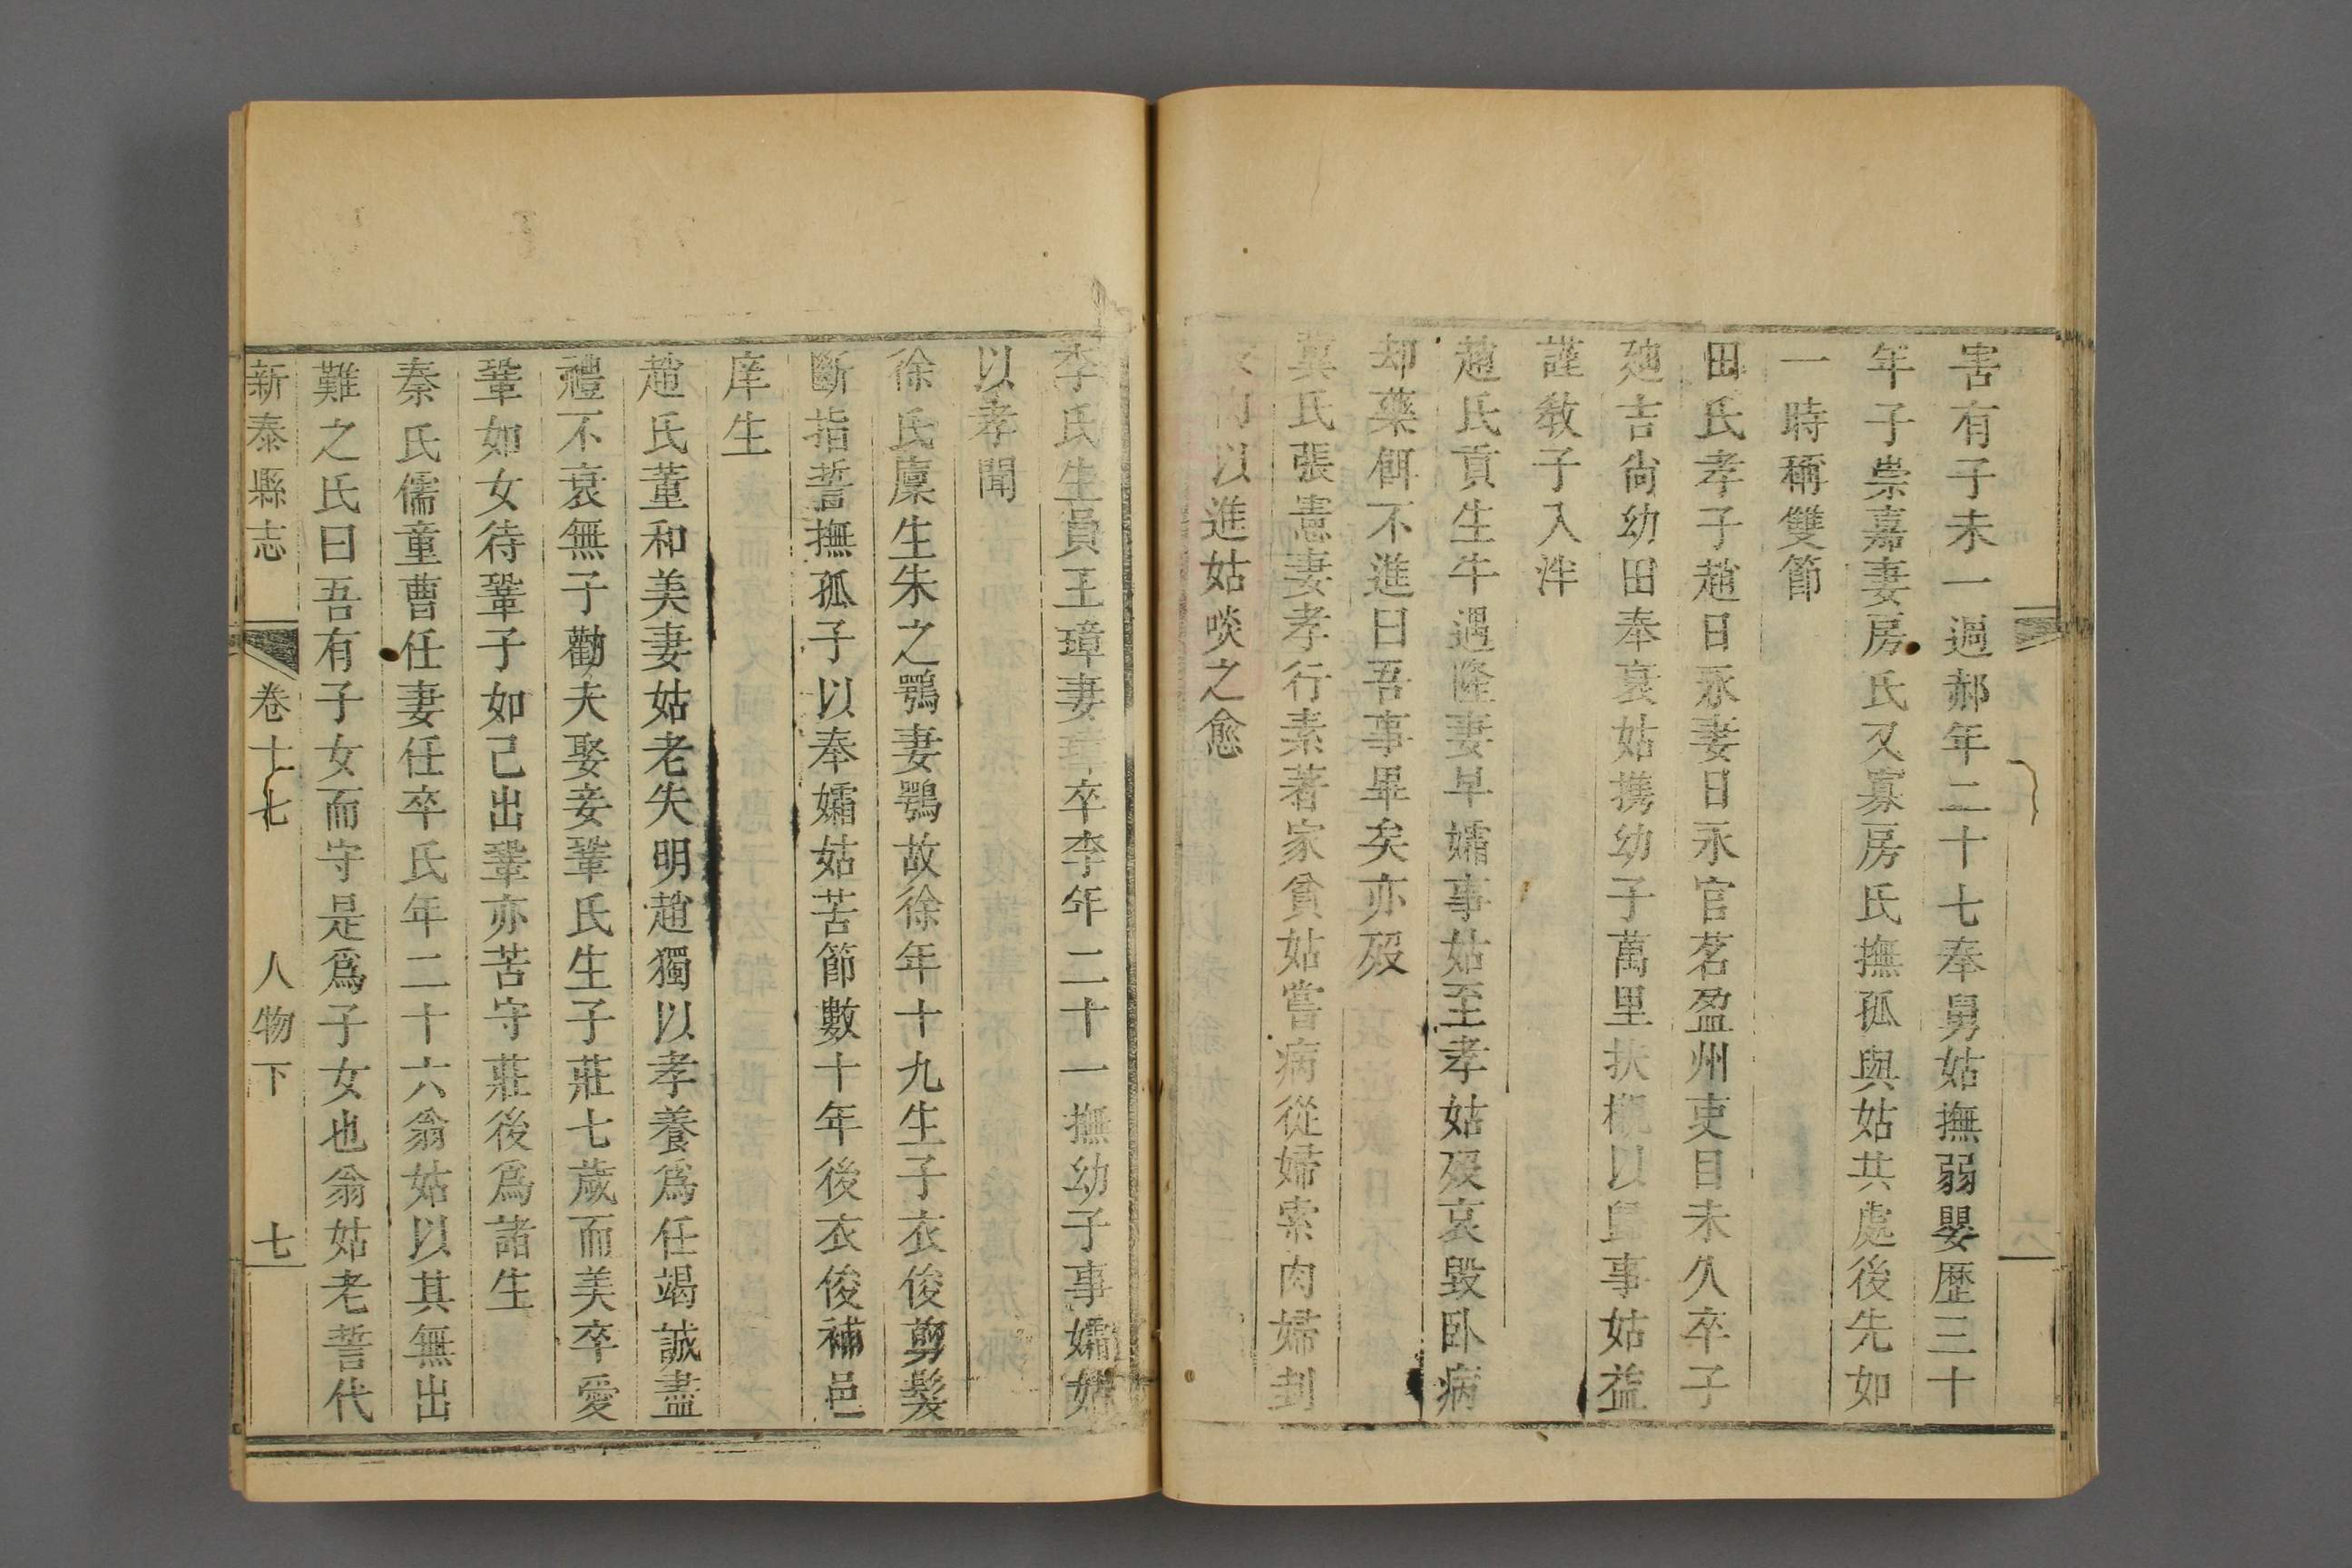 害有子未一過郝年二十七奉舅姑撫弱嬰歷三十
年子崇嘉妻房氏又寡房氏撫孤與姑共處後先如
一時稱雙節
田氏孝子趙日永妻日永官茗盈州吏目未久卒子
廸吉尙幼田奉哀姑携幼子萬里扶櫬以歸事姑益
謹敎子入泮
趙氏貢生牛遇隆妻早孀事姑至孝姑殁哀毀卧病
却藥餌不進曰吾事畢矣亦殁
冀氏張憲妻孝行素著家貧姑嘗病從婦索肉婦刲
肉以進姑啖之愈
李氏生員王璋妻璋卒李年二十一撫幼子事孀姑
以孝聞
徐氏廩生朱之鶚妻鶚故徐年十九生子衣俊剪髮
斷指誓撫孤子以奉孀姑苦節數十年後衣俊補邑
庠生
趙氏董和美妻姑老失明趙獨以孝養爲任竭誠盡
禮不衰無子勸夫娶妾鞏氏生子莊七歲而美卒愛
鞏如女待鞏子如己出鞏亦苦守莊後爲諸生
秦氏儒童曹任妻任卒氏年二十六翁姑以其無出
難之氏曰吾有子女而守是爲子女也翁姑老誓代
新泰縣志 卷十七 人物下 七